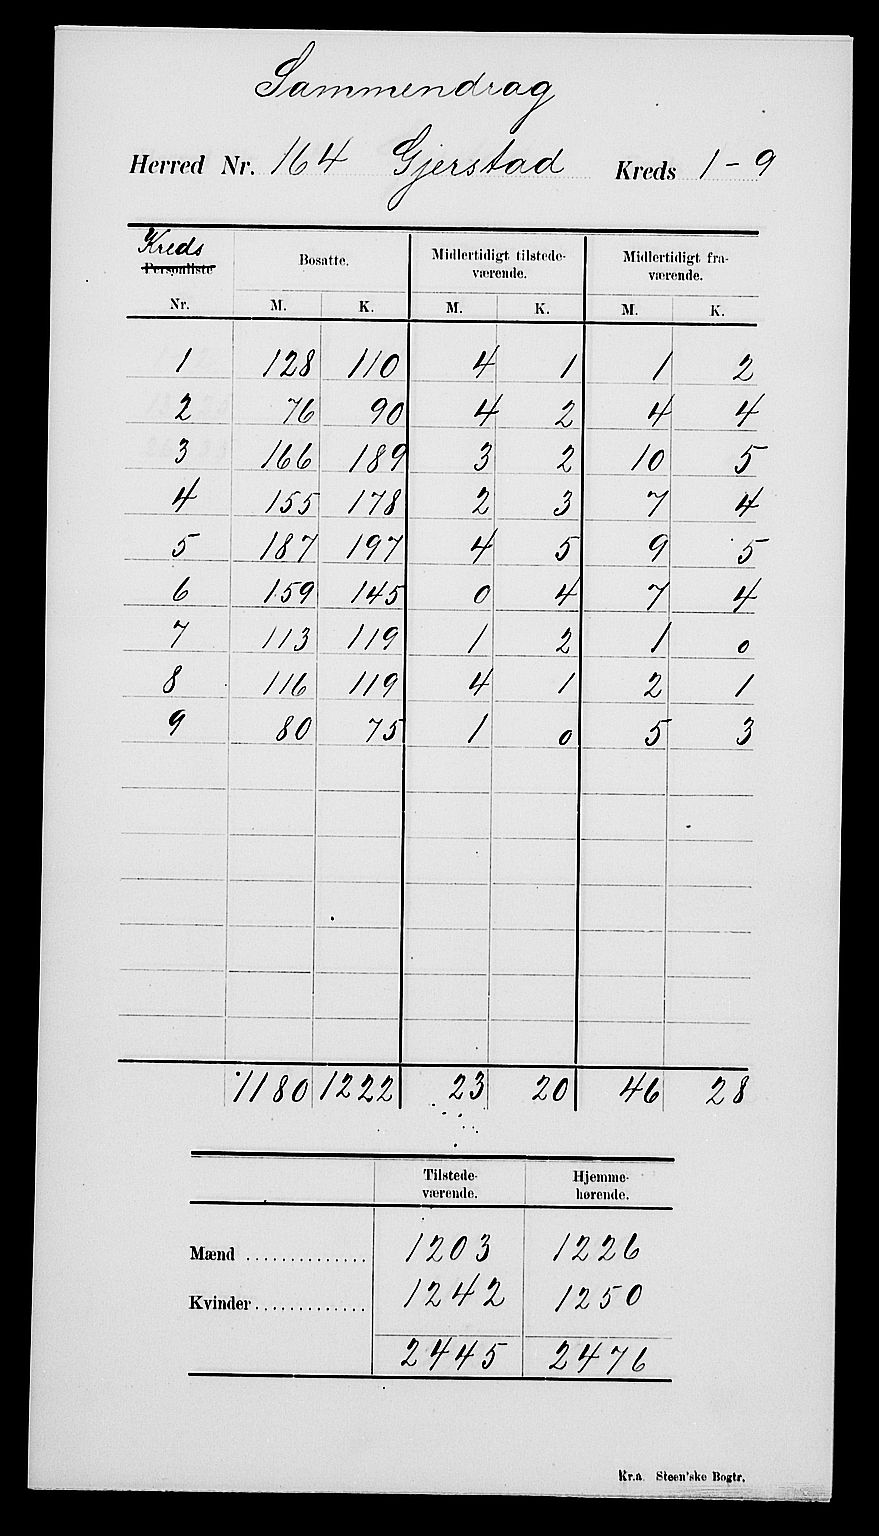 Sammendrag
Herred Nr. 164 Gjerstad Kreds 1-9
Kreds
Personliste Bosatte. Midlertidigt tilstede- Midlertidigt fra-
værende. værende.
Nr. M. K. M. K. M. K.
1 128 110 4 1 1 2
2 76 90 4 2 4 4
3 166 189 3 2 10 5
4 155 178 2 3 7 4
5 187 197 4 5 9 5
6 159 145 0 4 7 4
7 113 119 1 2 1 0
8 116 119 4 1 2 1
9 80 75 1 0 5 3
1180 1222 23 20 46 28
Tilstede- Hjemme-
værende. hørende.
Mænd .............. 1203 1226
Kvinder............. 1242 1250
2445 2476
Kr.a. Steen'ske Bogtr.